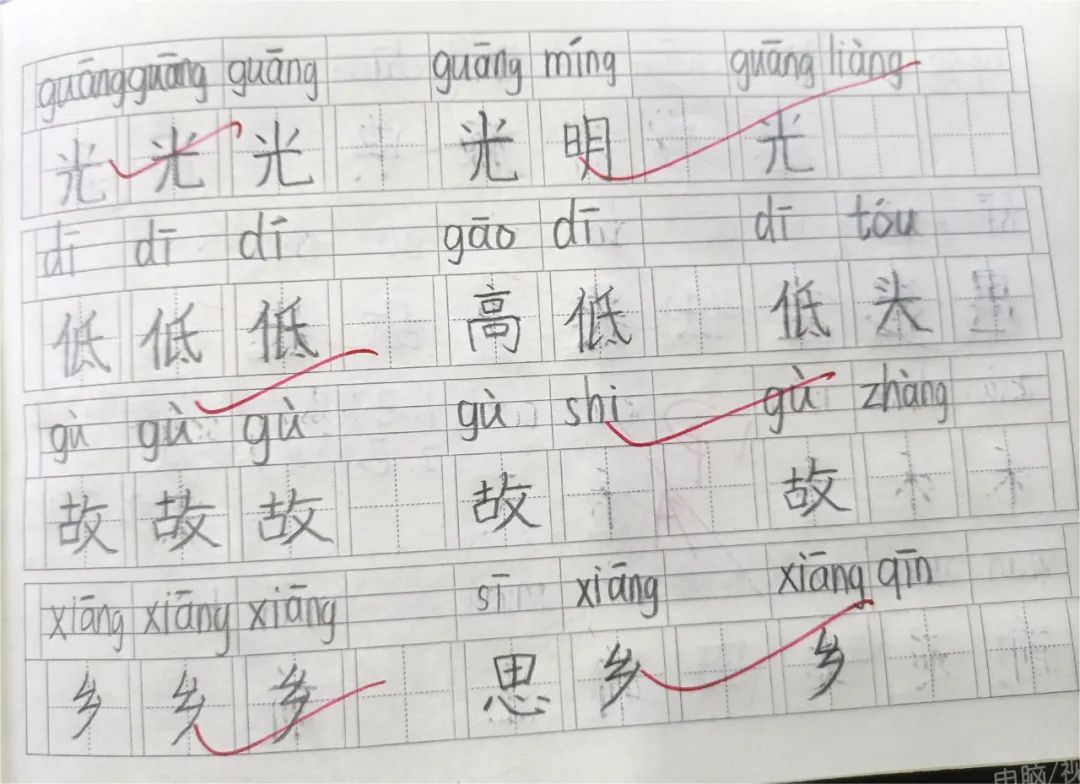 guāng guāng guāng guāng míng guāng liàng
光 光 光 光 明 光
dī dī dī gāo dī dī tóu
低 低 低 高 低 低 头
gù gù gù gù shi gù zhàng
故 故 故 故 故
xiāng xiāng xiāng sī xiāng xiāng qīn
乡 乡 乡 思 乡 乡
电脑/视